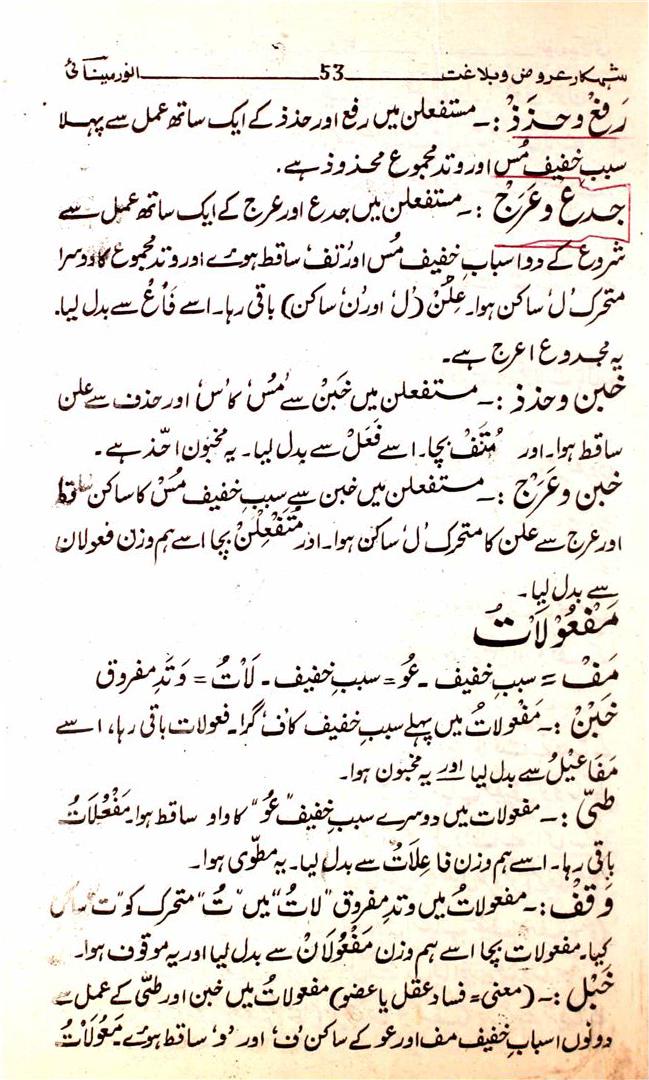 شہکار عروض و بلاغت 53 انور مینائی
رَفع وحذذ :۔ مستفعلن میں رفع اور حذذ کے ایک ساتھ عمل سے پہلا
سبب خفیف مُس اور وتد مجموع محذوذ ہے۔
جدع و عَرَج :۔ مستفعلن میں جدع اور عرج کے ایک ساتھ عمل سے
شروع کے دو اسبابِ خفیف مُس اور تف ساقط ہوئے اور وتد مجموع کا دوسرا
متحرک ’ل‘ ساکن ہوا۔ عِلْنْ (’ل‘ اور ’ن‘ ساکن) باقی رہا۔ اسے فَاعْ سے بدل لیا۔
یہ مجدوع اعرج ہے۔
خبن وحذذ :۔ مستفعلن میں خَبَنْ سے ’مُسْ‘ کا ’س‘ اور حذف سے علن
ساقط ہوا۔ اور مُتَفْ بچا۔ اسے فَعَلْ سے بدل لیا۔ یہ مخبون احّذ ہے۔
خبن وعَرَج :۔ مستفعلن میں خبن سے سببِ خفیف مُسْ کا ساکن ساقط
اور عرج سے علن کا متحرک ’ل‘ ساکن ہوا۔ اور مُتَفْعِلْنْ بچا اسے ہم وزن فعولان
سے بدل لیا۔
مَفْعُوْلَاتُ
مَفْ = سببِ خفیف ۔ عُوْ = سببِ خفیف ۔ لَاتُ = وَتَدِ مفروق
خَبَنْ :۔ مَفْعولاتُ میں پہلے سببِ خفیف کا ’ف‘ گرا۔ فعولات باقی رہا، اسے
مَفَاعِیْلُ سے بدل لیا اور یہ مخبون ہوا۔
طیّ :۔ مفعولات میں دوسرے سببِ خفیف ”عُوْ“ کا واو ساقط ہوا۔ مَفْعُلَاتُ
باقی رہا۔ اسے ہم وزن فاعِلَاتُ سے بدل لیا۔ یہ مطوّی ہوا۔
وَقف :۔ مفعولاتُ میں وتدِ مفروق ”لاتُ“ میں ”تُ“ متحرک کو ”ت“ ساکن
کیا۔ مفعولات بچا اسے ہم وزن مَفْعُوْلَانْ سے بدل لیا اور یہ موقوف ہوا۔
خَبْل :۔ (معنی = فساد عقل یا عضو) مفعولاتُ میں خبن اور طیّ کے عمل سے
دونوں اسبابِ خفیف مف اور عو کے ساکن ’ف‘ اور ’و‘ ساقط ہوئے۔ مَعُلَاتُ